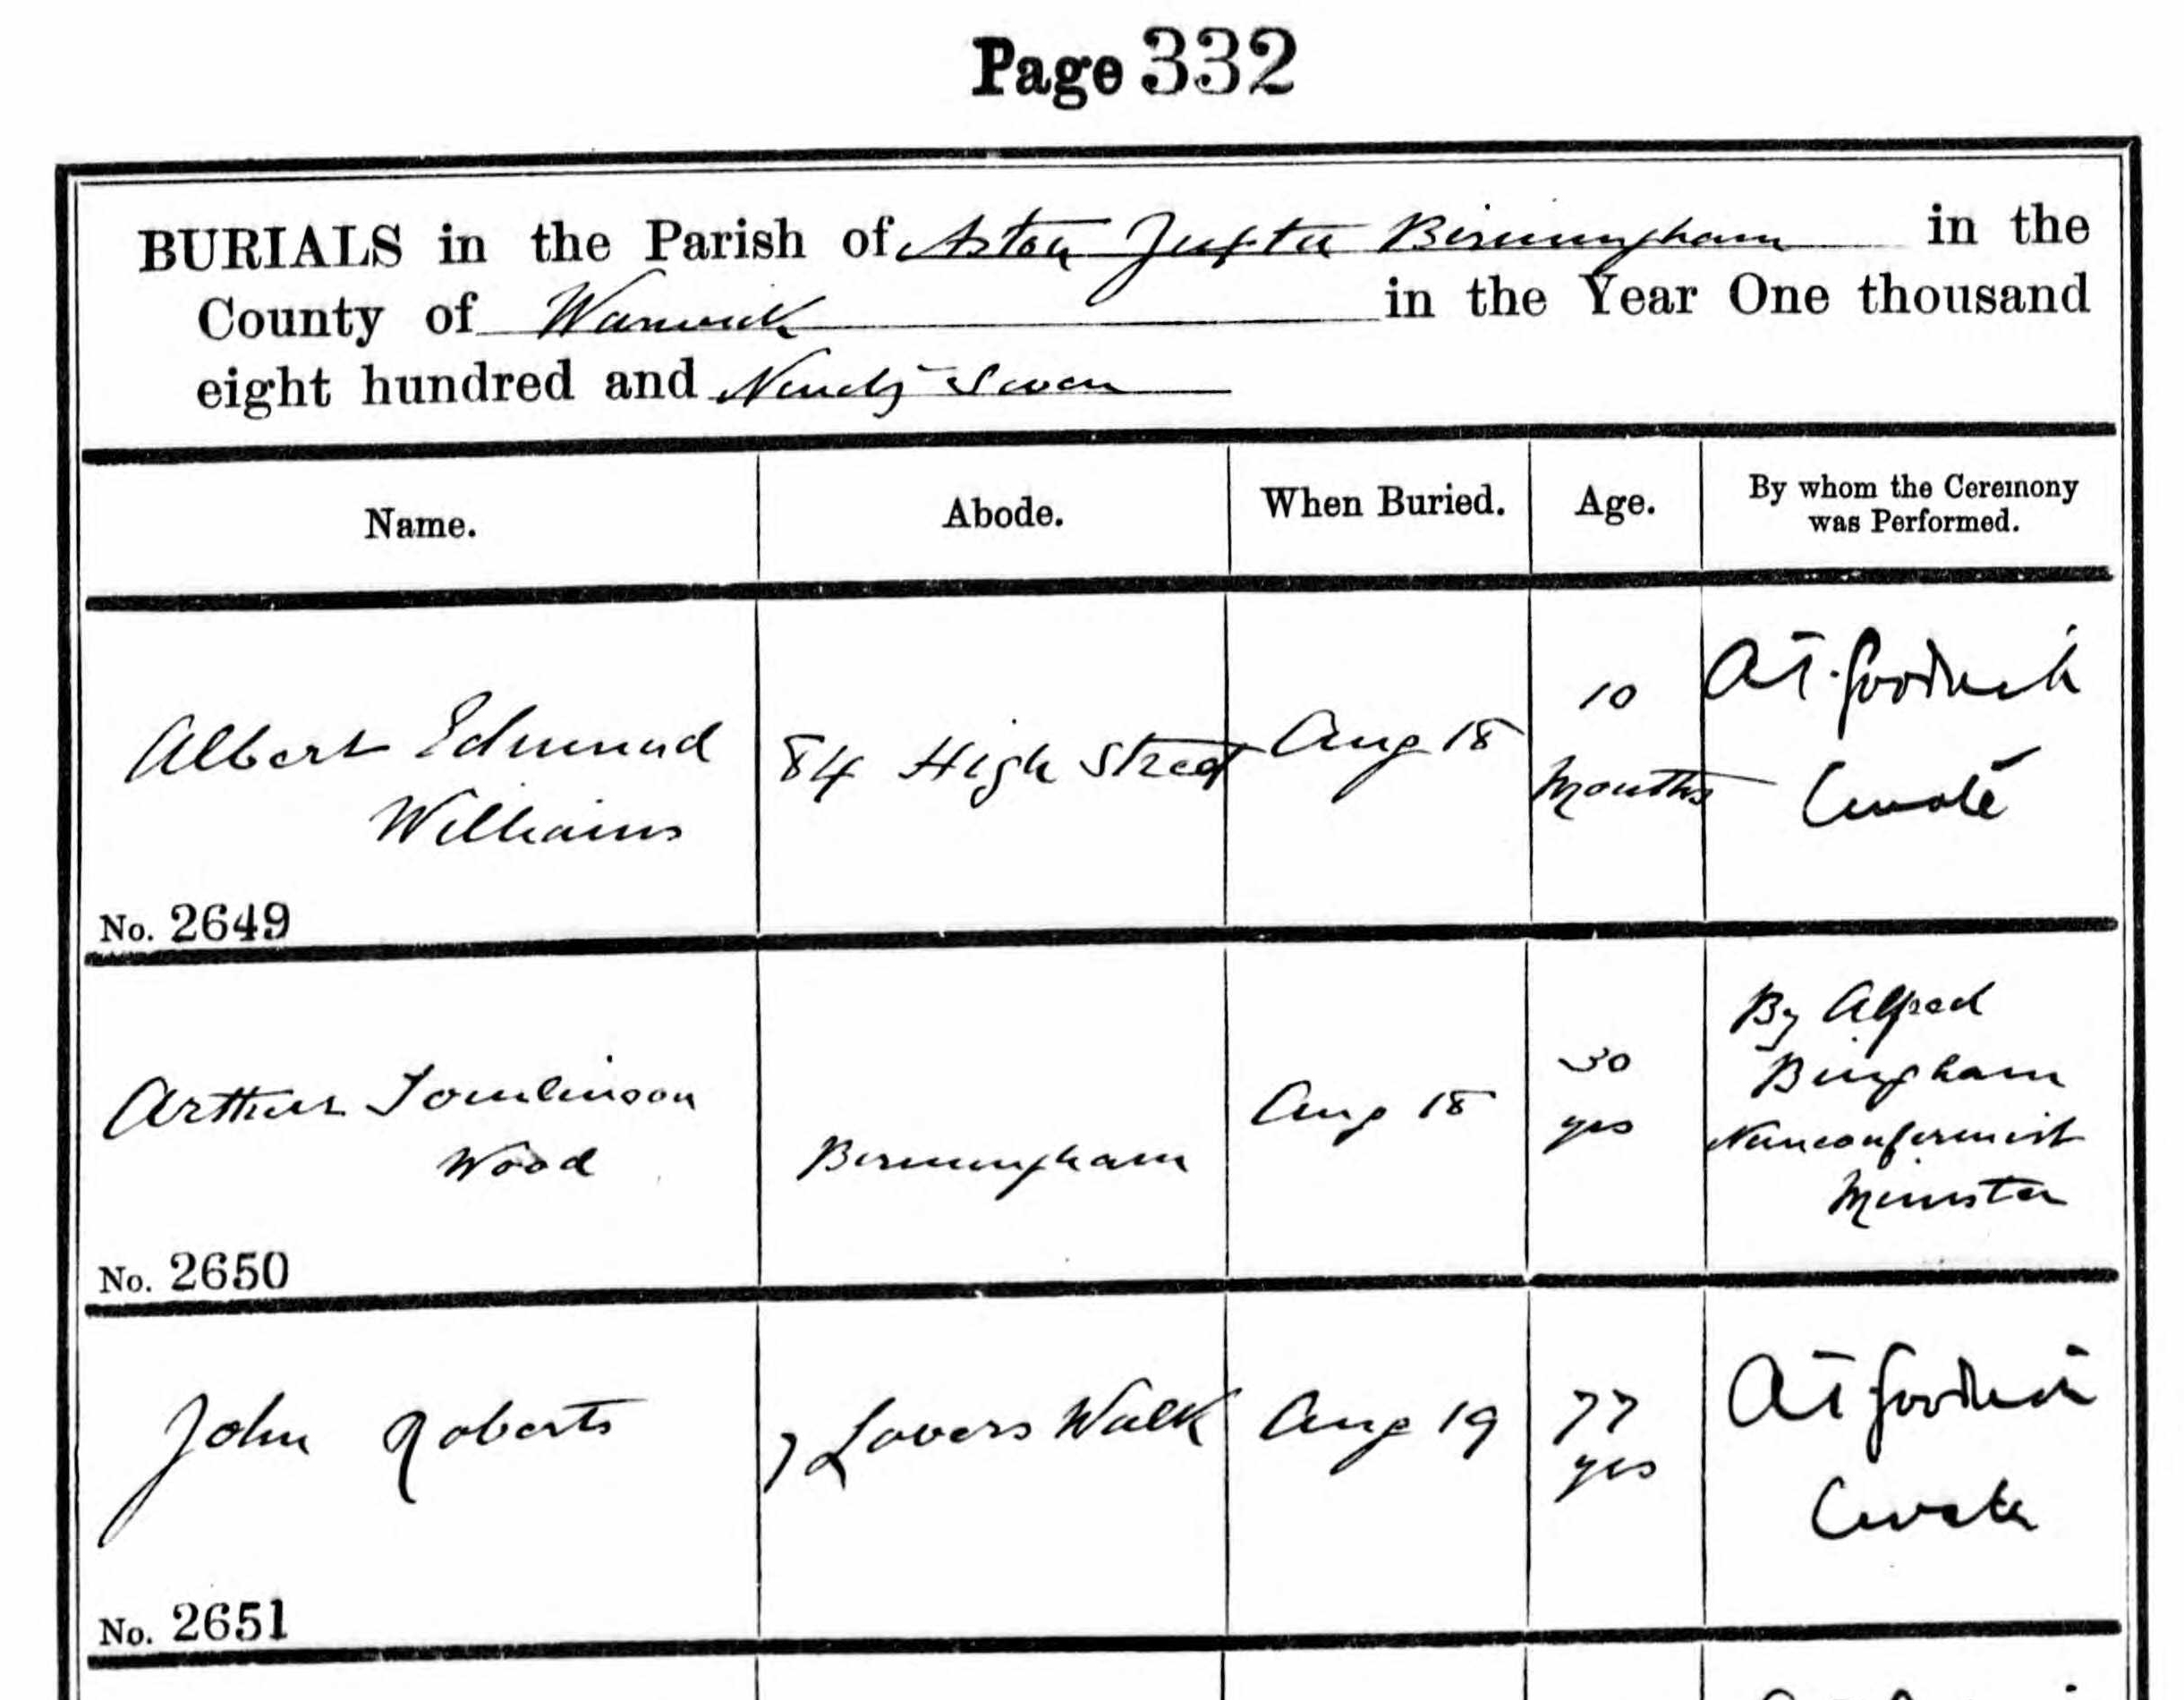 Page 332
BURIALS in the Parish of Aston Juxta Birmingham in the
County of Warwick in the Year One thousand
eight hundred and Ninety Seven
Name. Abode. When Buried. Age. By whom the Ceremony was Performed.
Albert Edmund
Williams
84 High Street
Aug 18
10
Months
Curate
No. 2649
Arthur Tomlinson
Wood
Birmingham
Aug 18
30
yrs
By Alfred
Bingham
Nonconformist
Minister
No. 2650
John Roberts
7 Lovers Walk
Aug 19
77
yrs
Curate
No. 2651